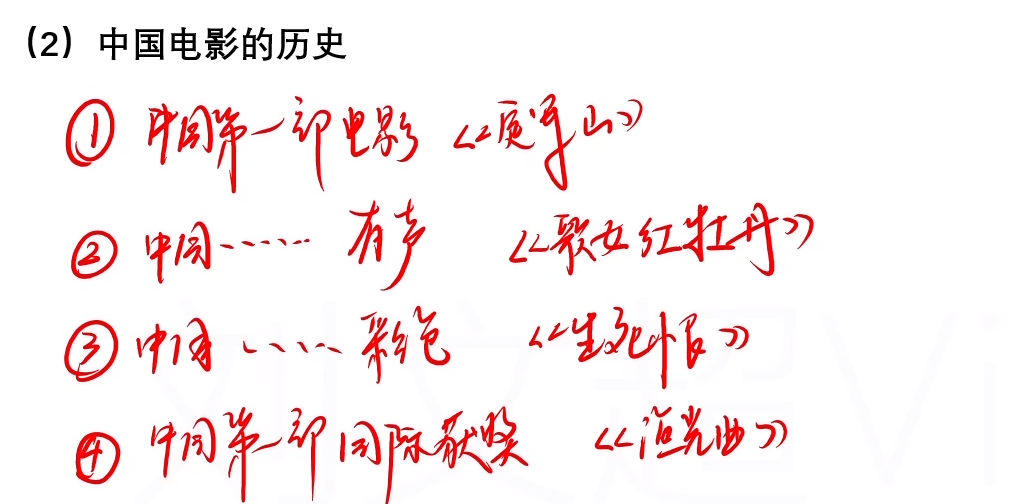 （2）中国电影的历史
① 中国第一部电影《定军山》
② 中国…… 有声 《歌女红牡丹》
③ 中国…… 彩色 《生死恨》
④ 中国第一部国际获奖 《渔光曲》